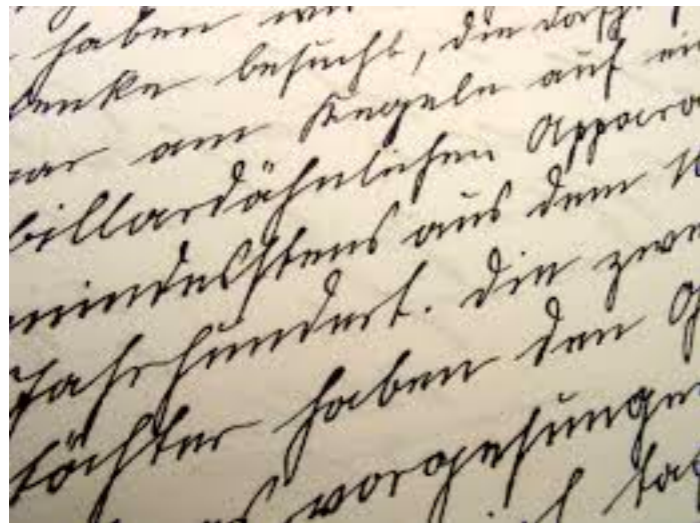 haben wir
besucht, die
war am Kegeln auf
billardähnlichen Appara
mindestens aus dem
Jahrhundert. Die zwe
töchter haben den
vorgesunge